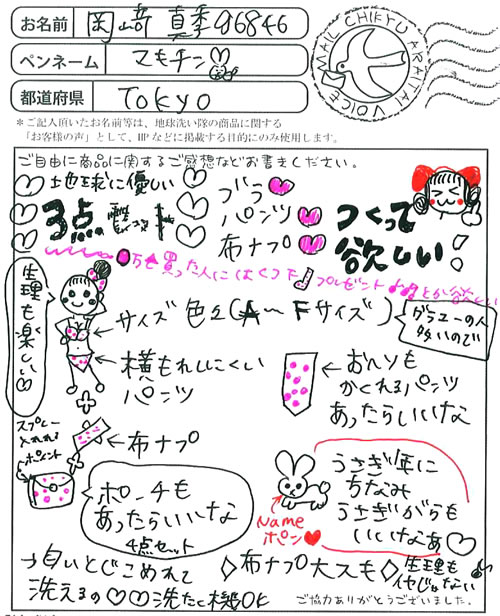 お名前 岡崎 真季 96846
ペンネーム マキチン
都道府県 Tokyo
MAIL CHIKYU ARAITAI VOICE
＊ご記入頂いたお名前等は、地球洗い隊の商品に関する
「お客様の声」として、HPなどに掲載する目的にのみ使用します。
ご自由に商品に関するご感想などお書きください。
♡地球に優しい
♡3点
♡ブラ♥
パンツ♥
布ナプ♥
つくって
欲しい!
買った人には
プレゼント♪♪とか欲しい
生理も楽しい♡
←サイズ 色々(A〜Fサイズ)
グラマーの人
多いので
←横もれしにくい
パンツ
おヘソも
かくれるパンツ
あったらいいな
スプレー
入れれる
ポイント
←布ナプ
ポーチも
あったらいいな
4点セット
うさぎ年に
ちなみ
うさぎがらも
いいなぁ♡
Name
ポピン♥
→匂いとじこめれて
洗えるの♡♡洗たく機OK
◇布ナプ大スキ◇
生理も
イヤじゃない
ご協力ありがとうございました。